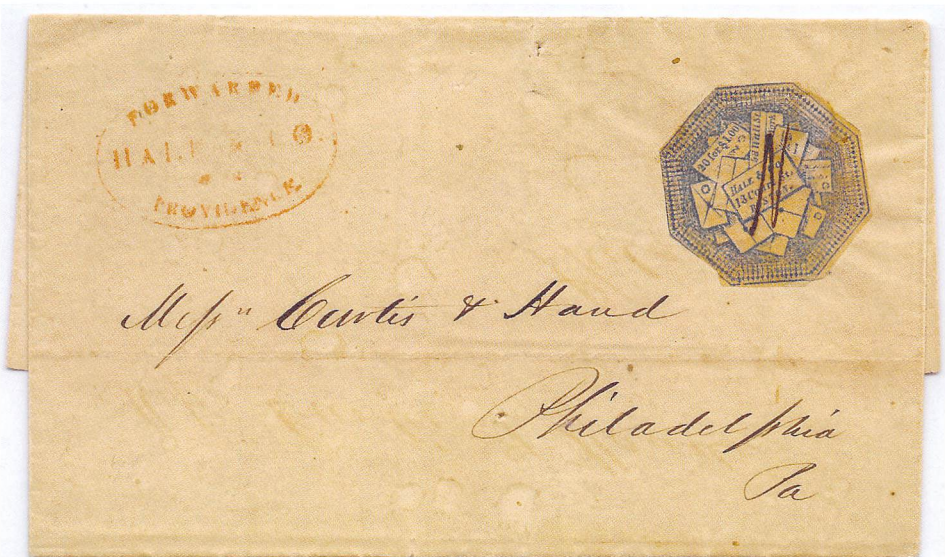 FORWARDED
HALE & CO.
PROVIDENCE
20 for $1.00
HALE & Co.
13 Court St.
Messrs Curtis & Hand
Philadelphia
Pa